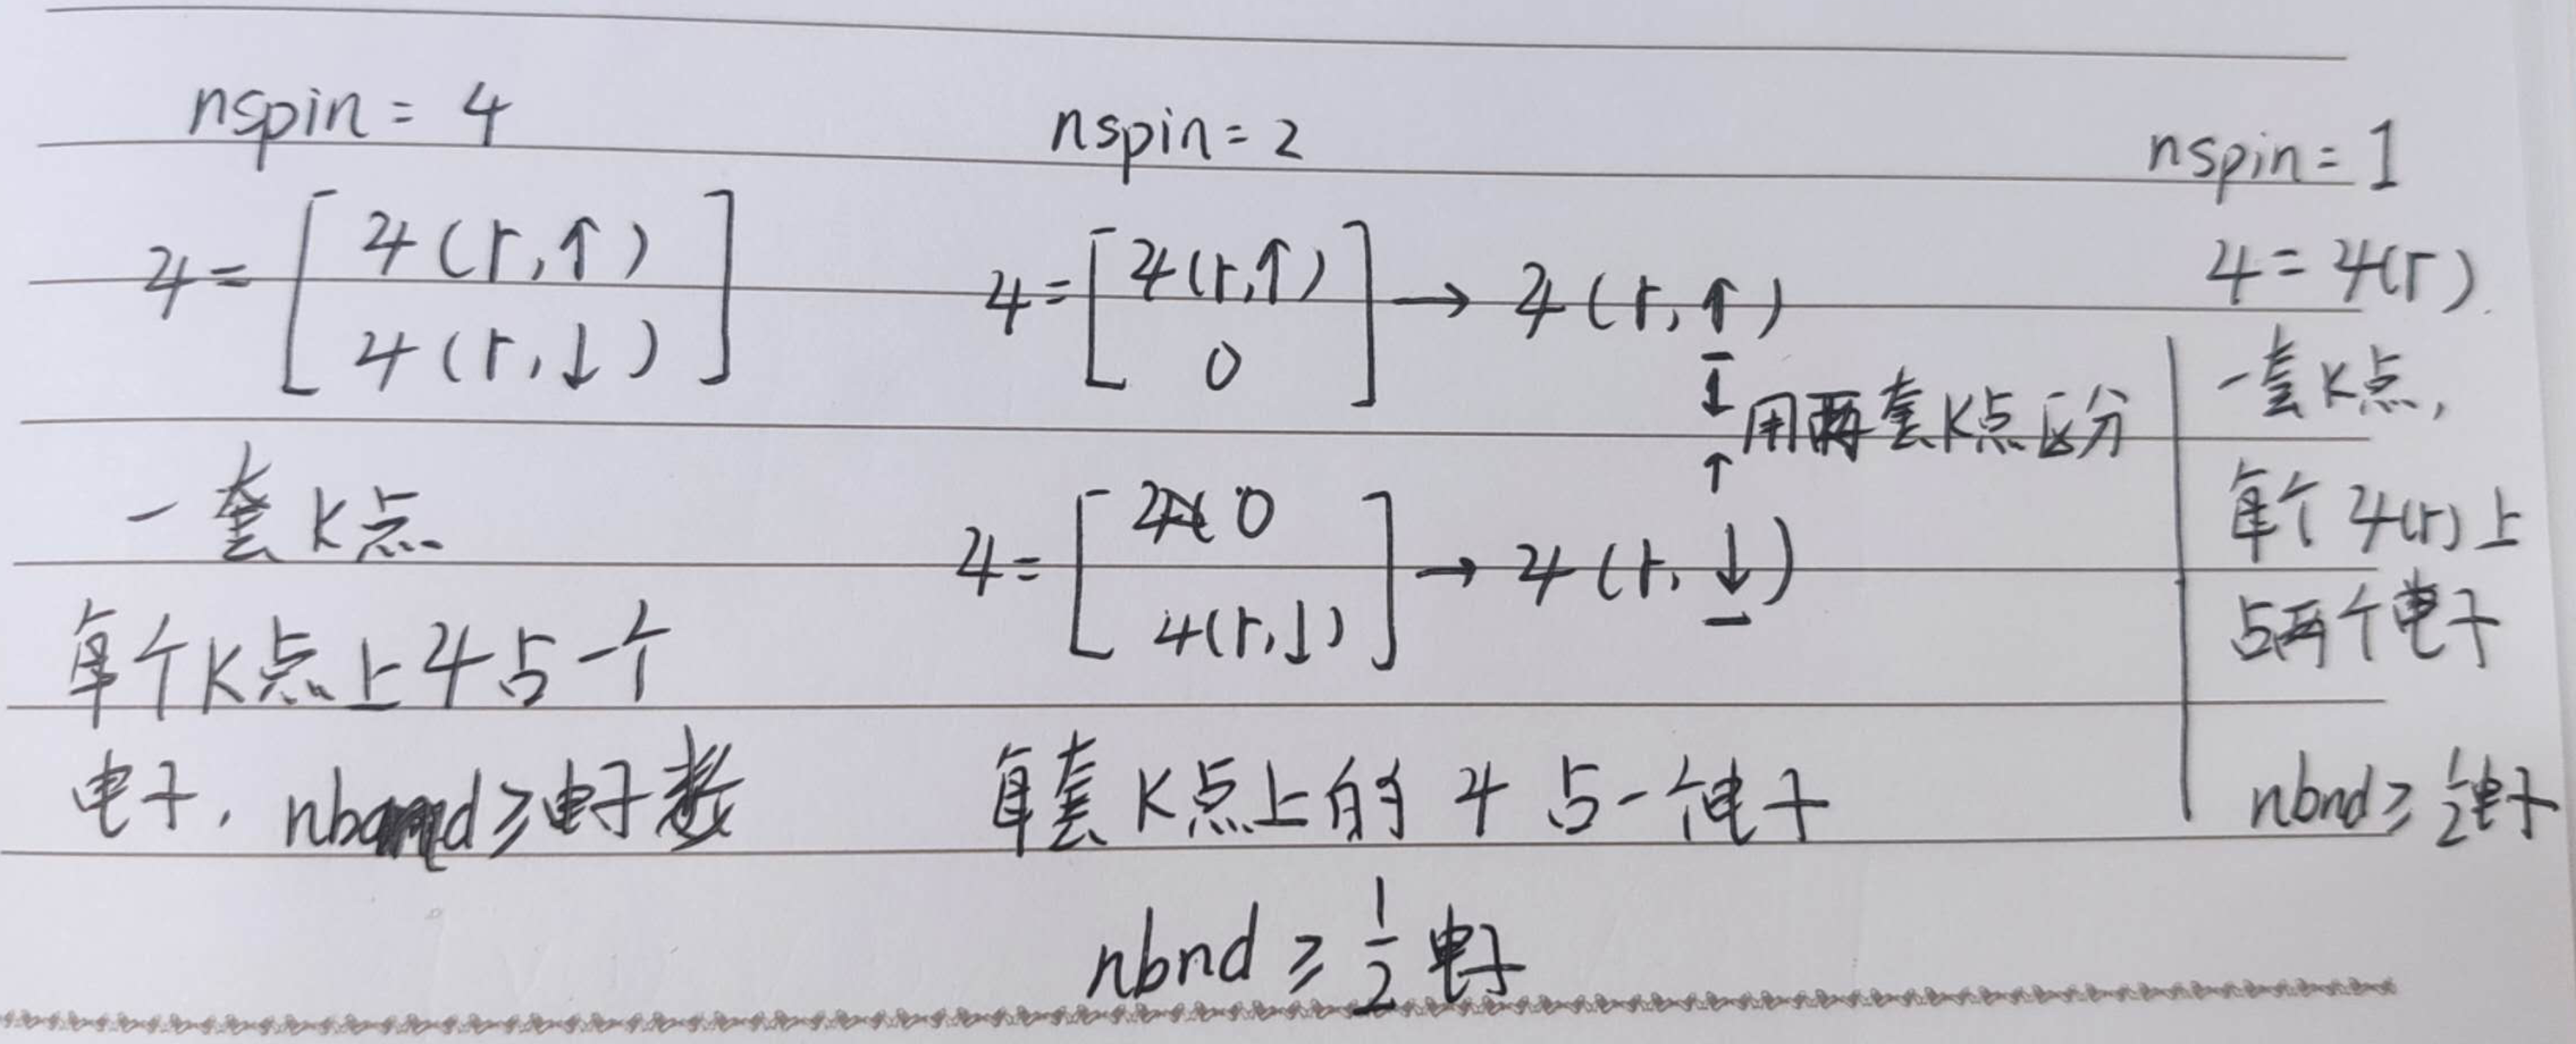 nspin = 4
ψ = [ ψ(r,↑)
ψ(r,↓) ]
一套K点
每个K点上ψ占一个
电子, nband ≥ 电子数
nspin = 2
ψ = [ ψ(r,↑)
0 ] → ψ(r,↑)
用两套K点区分
ψ = [ 0
ψ(r,↓) ] → ψ(r,↓)
每套K点上的ψ占一个电子
nbnd ≥ 1/2 电子
nspin = 1
ψ = ψ(r)
一套K点,
每个ψ(r)上
占两个电子
nbnd ≥ 1/2电子